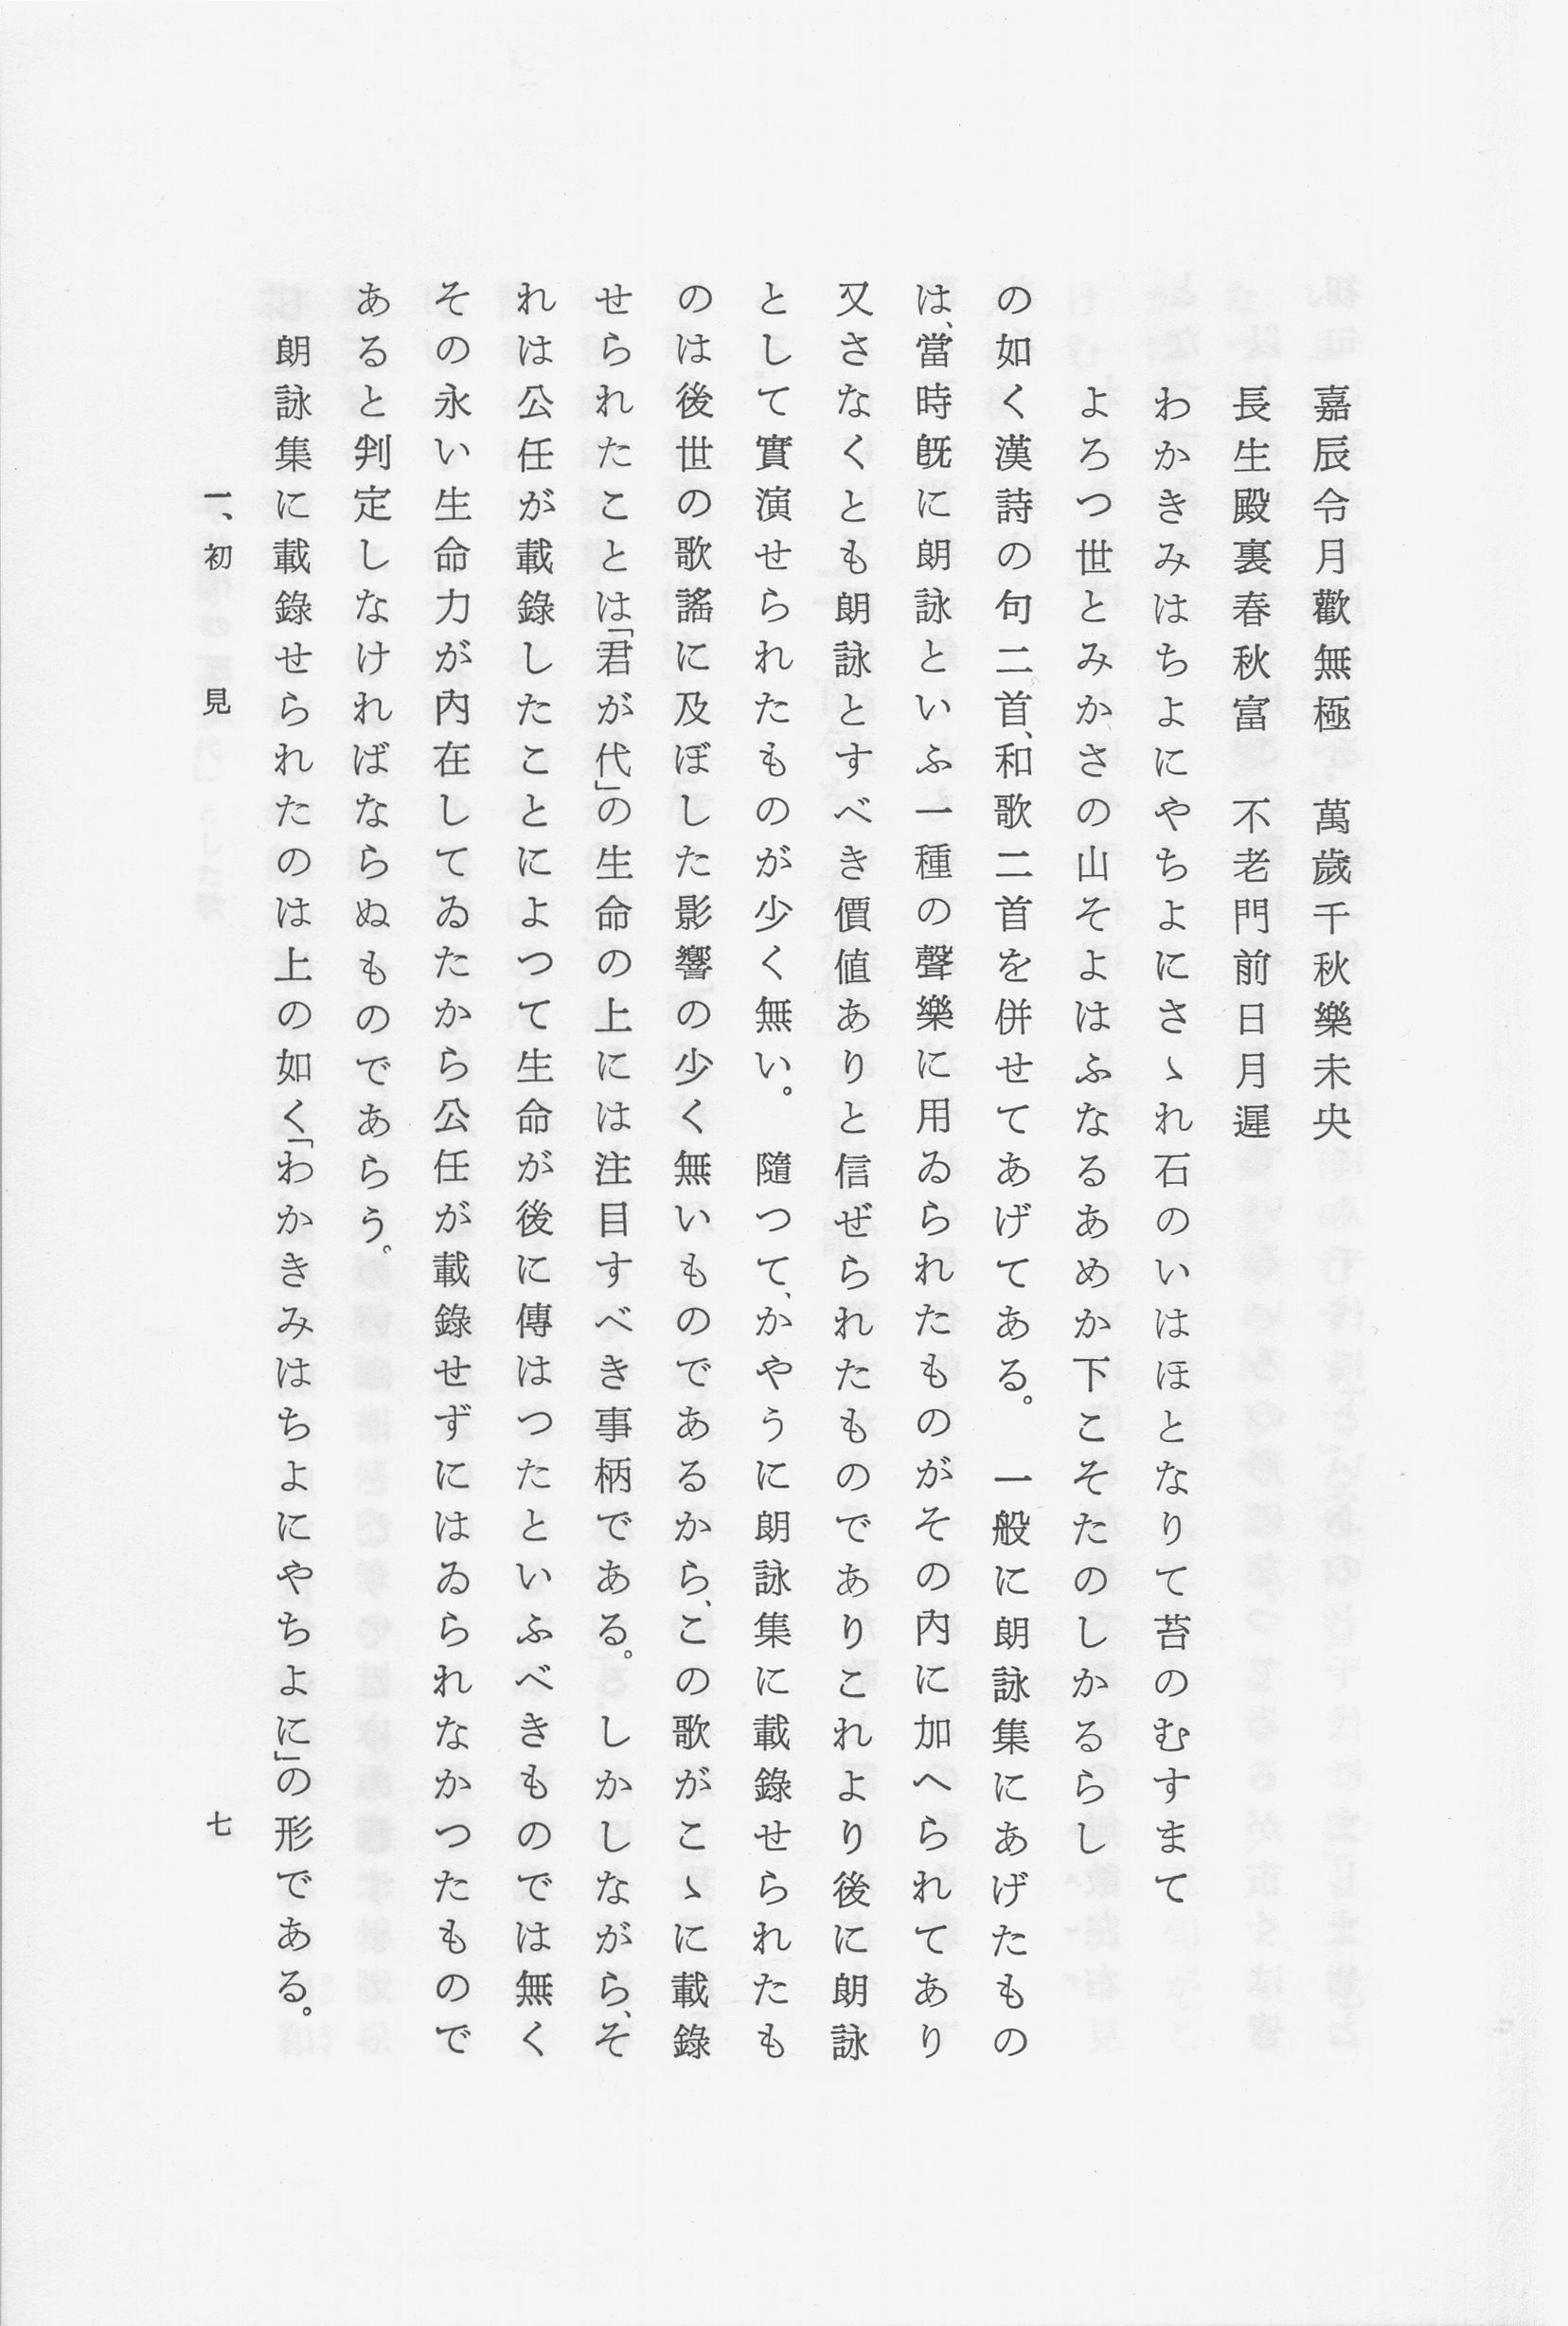 嘉辰令月歡無極　萬歲千秋樂未央
長生殿裏春秋富　不老門前日月遲
わかきみはちよにやちよにさゝれ石のいはほとなりて苔のむすまて
よろつ世とみかさの山そよはふなるあめか下こそたのしかるらし
の如く漢詩の句二首、和歌二首を併せてあげてある。　一般に朗詠集にあげたもの
は、當時既に朗詠といふ一種の聲樂に用ゐられたものがその内に加へられてあり
又さなくとも朗詠とすべき價値ありと信ぜられたものでありこれより後に朗詠
として實演せられたものが少く無い。　隨つて、かやうに朗詠集に載錄せられたも
のは後世の歌謠に及ぼした影響の少く無いものであるから、この歌がこゝに載錄
せられたことは「君が代」の生命の上には注目すべき事柄である。　しかしながら、そ
れは公任が載錄したことによつて生命が後に傳はつたといふべきものでは無く
その永い生命力が内在してゐたから公任が載錄せずにはゐられなかつたもので
あると判定しなければならぬものであらう。
朗詠集に載錄せられたのは上の如く「わかきみはちよにやちよに」の形である。
一、初　見　七